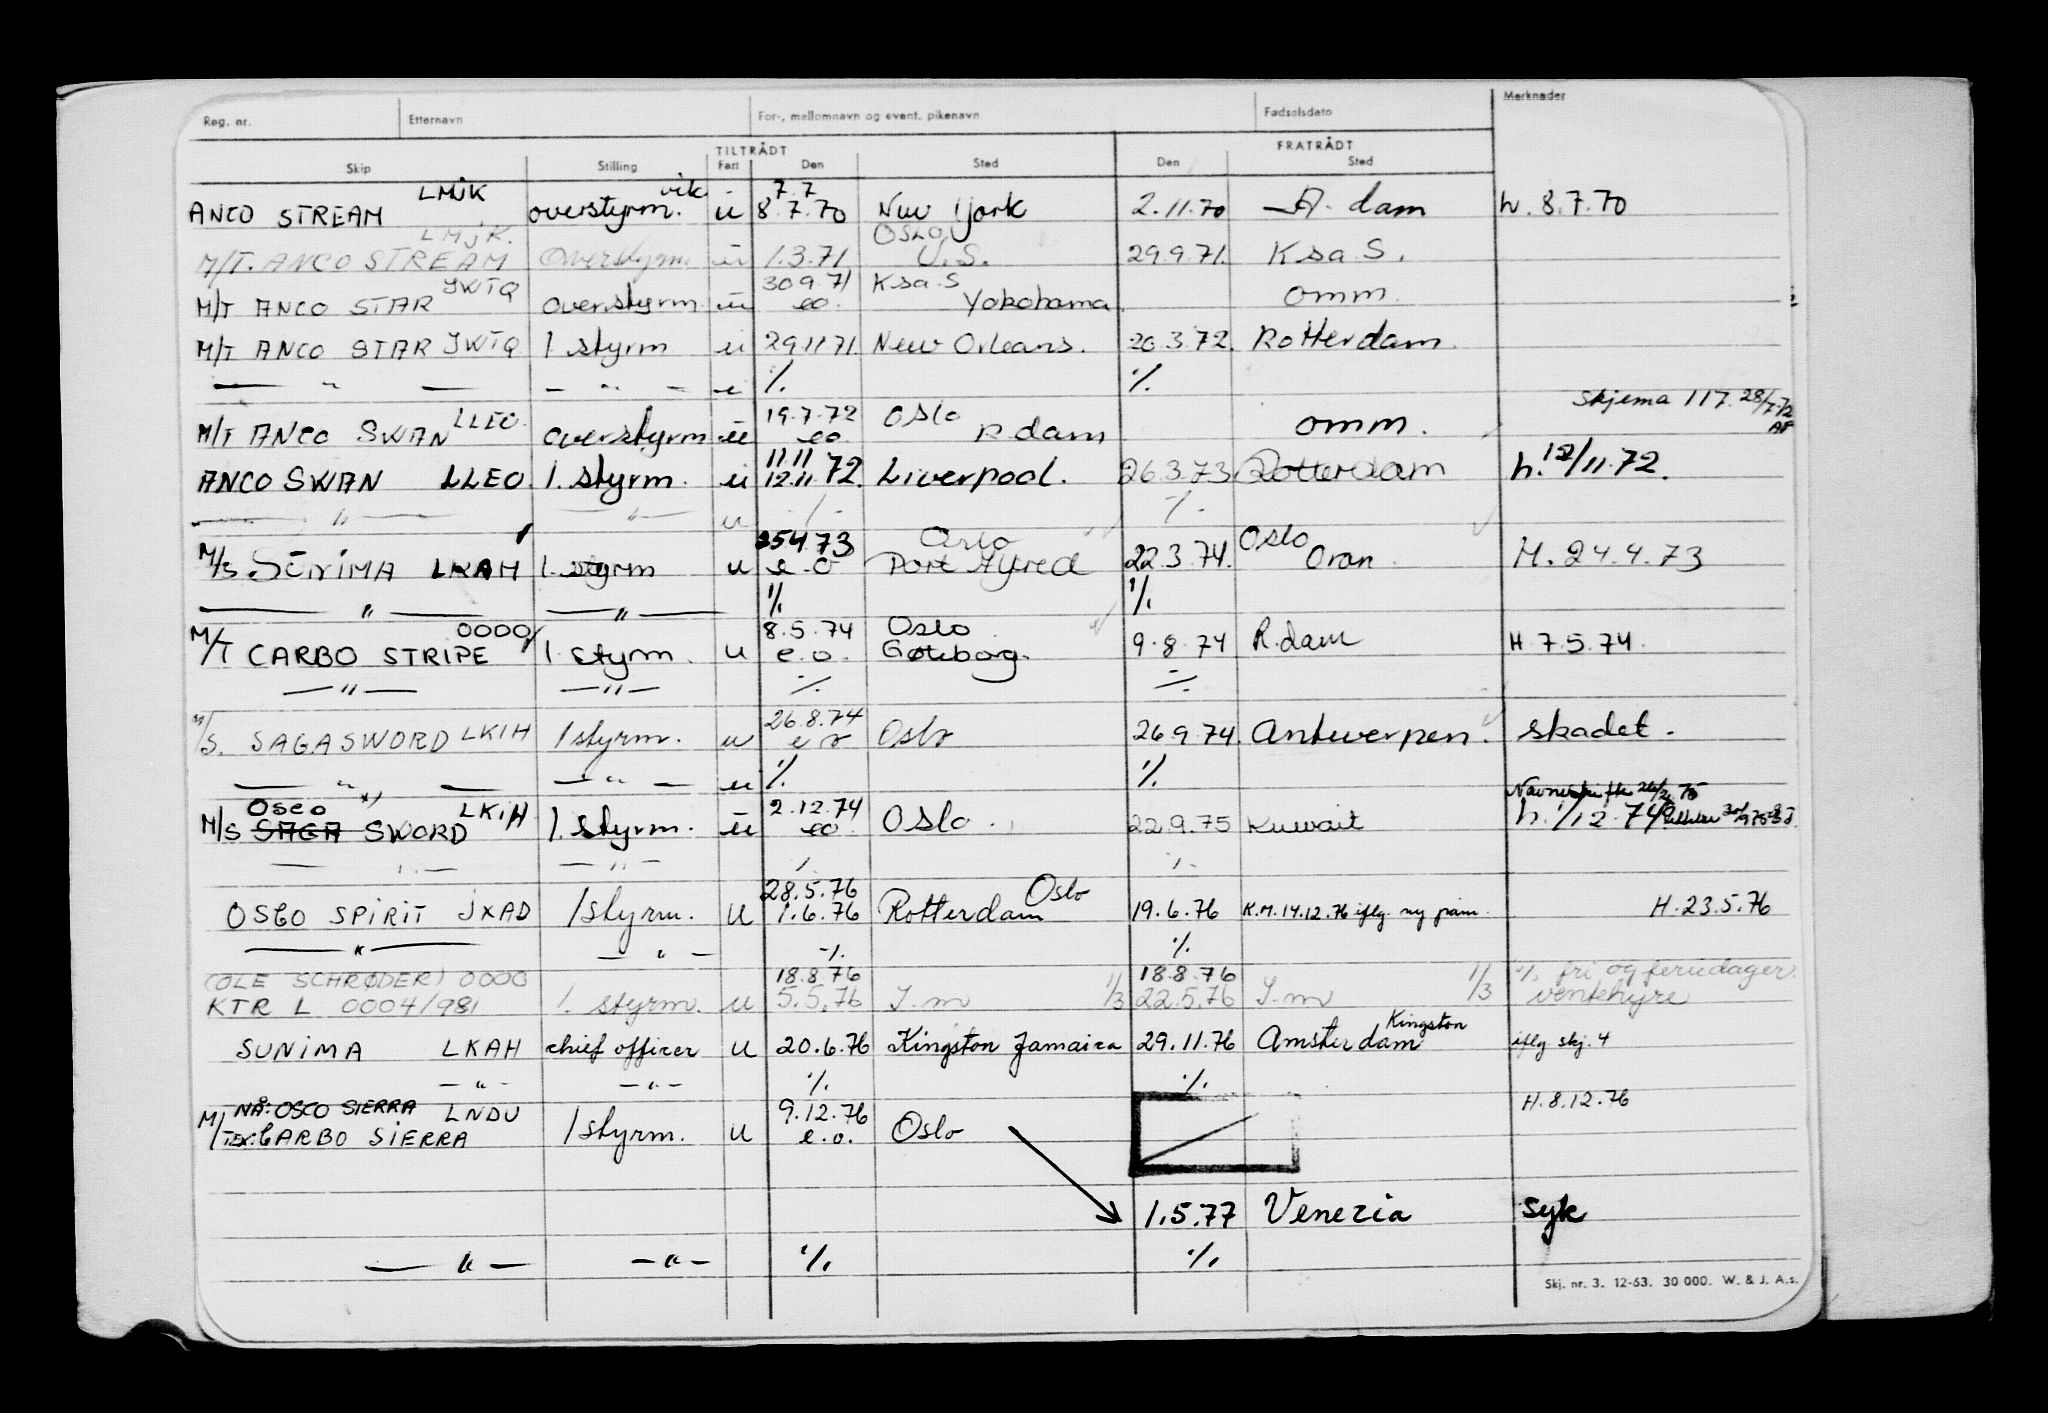 Reg. nr. Etternavn For-, mellomnavn og event. pikenavn Fødselsdato Merknader
TILTRÅDT FRATRÅDT
Skip Stilling Fart Den Sted Den Sted
LMJK vik. 7.7
ANCO STREAM overstyrm. u 8.7.70 New York 2.11.70 A-dam h. 8.7.70
LMJK. OSLO
M/T. ANCO STREAM overstyrm. u 1.3.71 U.S. 29.9.71. Ksa S.
JWTQ 30.9.71 Ksa S
M/T ANCO STAR overstyrm u eo. Yokohama omm.
M/T ANCO STAR JWTQ 1 styrm u 29.11.71. New Orleans. 20.3.72. Rotterdam.
— " — — " — u %. %.
LLEO. 19.7.72 Oslo Skjema 117. 28/7 72
M/T ANCO SWAN overstyrm u eo. R.dam omm. AF
11.11
ANCO SWAN LLEO 1. styrm. u 12.11.72. Liverpool. 26.3.73 Rotterdam h. 12/11.72.
— " — — " — u %. %.
25.4.73 Oslo Oslo
M/S SUNIMA LKAH 1. styrm u e.o Port Alfred 22.3.74. Oran M. 24.4.73
— " — — " — %. %.
0000 8.5.74 Oslo
M/T CARBO STRIPE 1. styrm. u e.o. Gøteborg. 9.8.74 R.dam H 7.5.74.
— " — — " — %. %.
26.8.74
M/S. SAGASWORD LKIH 1 styrm. u e o Oslo 26.9.74. Antwerpen. skadet.
— " — — " — u %. %.
OSCO x) LKIH 2.12.74 Navneskifte
M/S SAGA SWORD 1. styrm. u eo. Oslo. 22.9.75 Kuwait h. 1/12.74
— " — — " — %. %.
28.5.76 Oslo
OSCO SPIRIT JXAD 1 styrm. u 1.6.76 Rotterdam 19.6.76 K.M. 14.12.76 iflg. ny pam. H. 23.5.76
— " — — " — %. %.
(OLE SCHRØDER) 0000 18.8.76 18.8.76 %. fri og feriedager.
KTR L 0004/981 1. styrm. u 5.5.76 I.m 1/3 22.5.76 I.m 1/3 ventehyre
Kingston
SUNIMA LKAH chief officer u 20.6.76 Kingston Jamaica 29.11.76 Amsterdam iflg skj. 4
— " — — " — %. %.
NÅ: OSCO SIERRA LNDU 9.12.76 H. 8.12.76
M/T EX: CARBO SIERRA 1 styrm. u e.o. Oslo
1.5.77 Venezia syk
— " — — " — %. %.
Skj. nr. 3. 12-63. 30 000. W. & J. A.s.